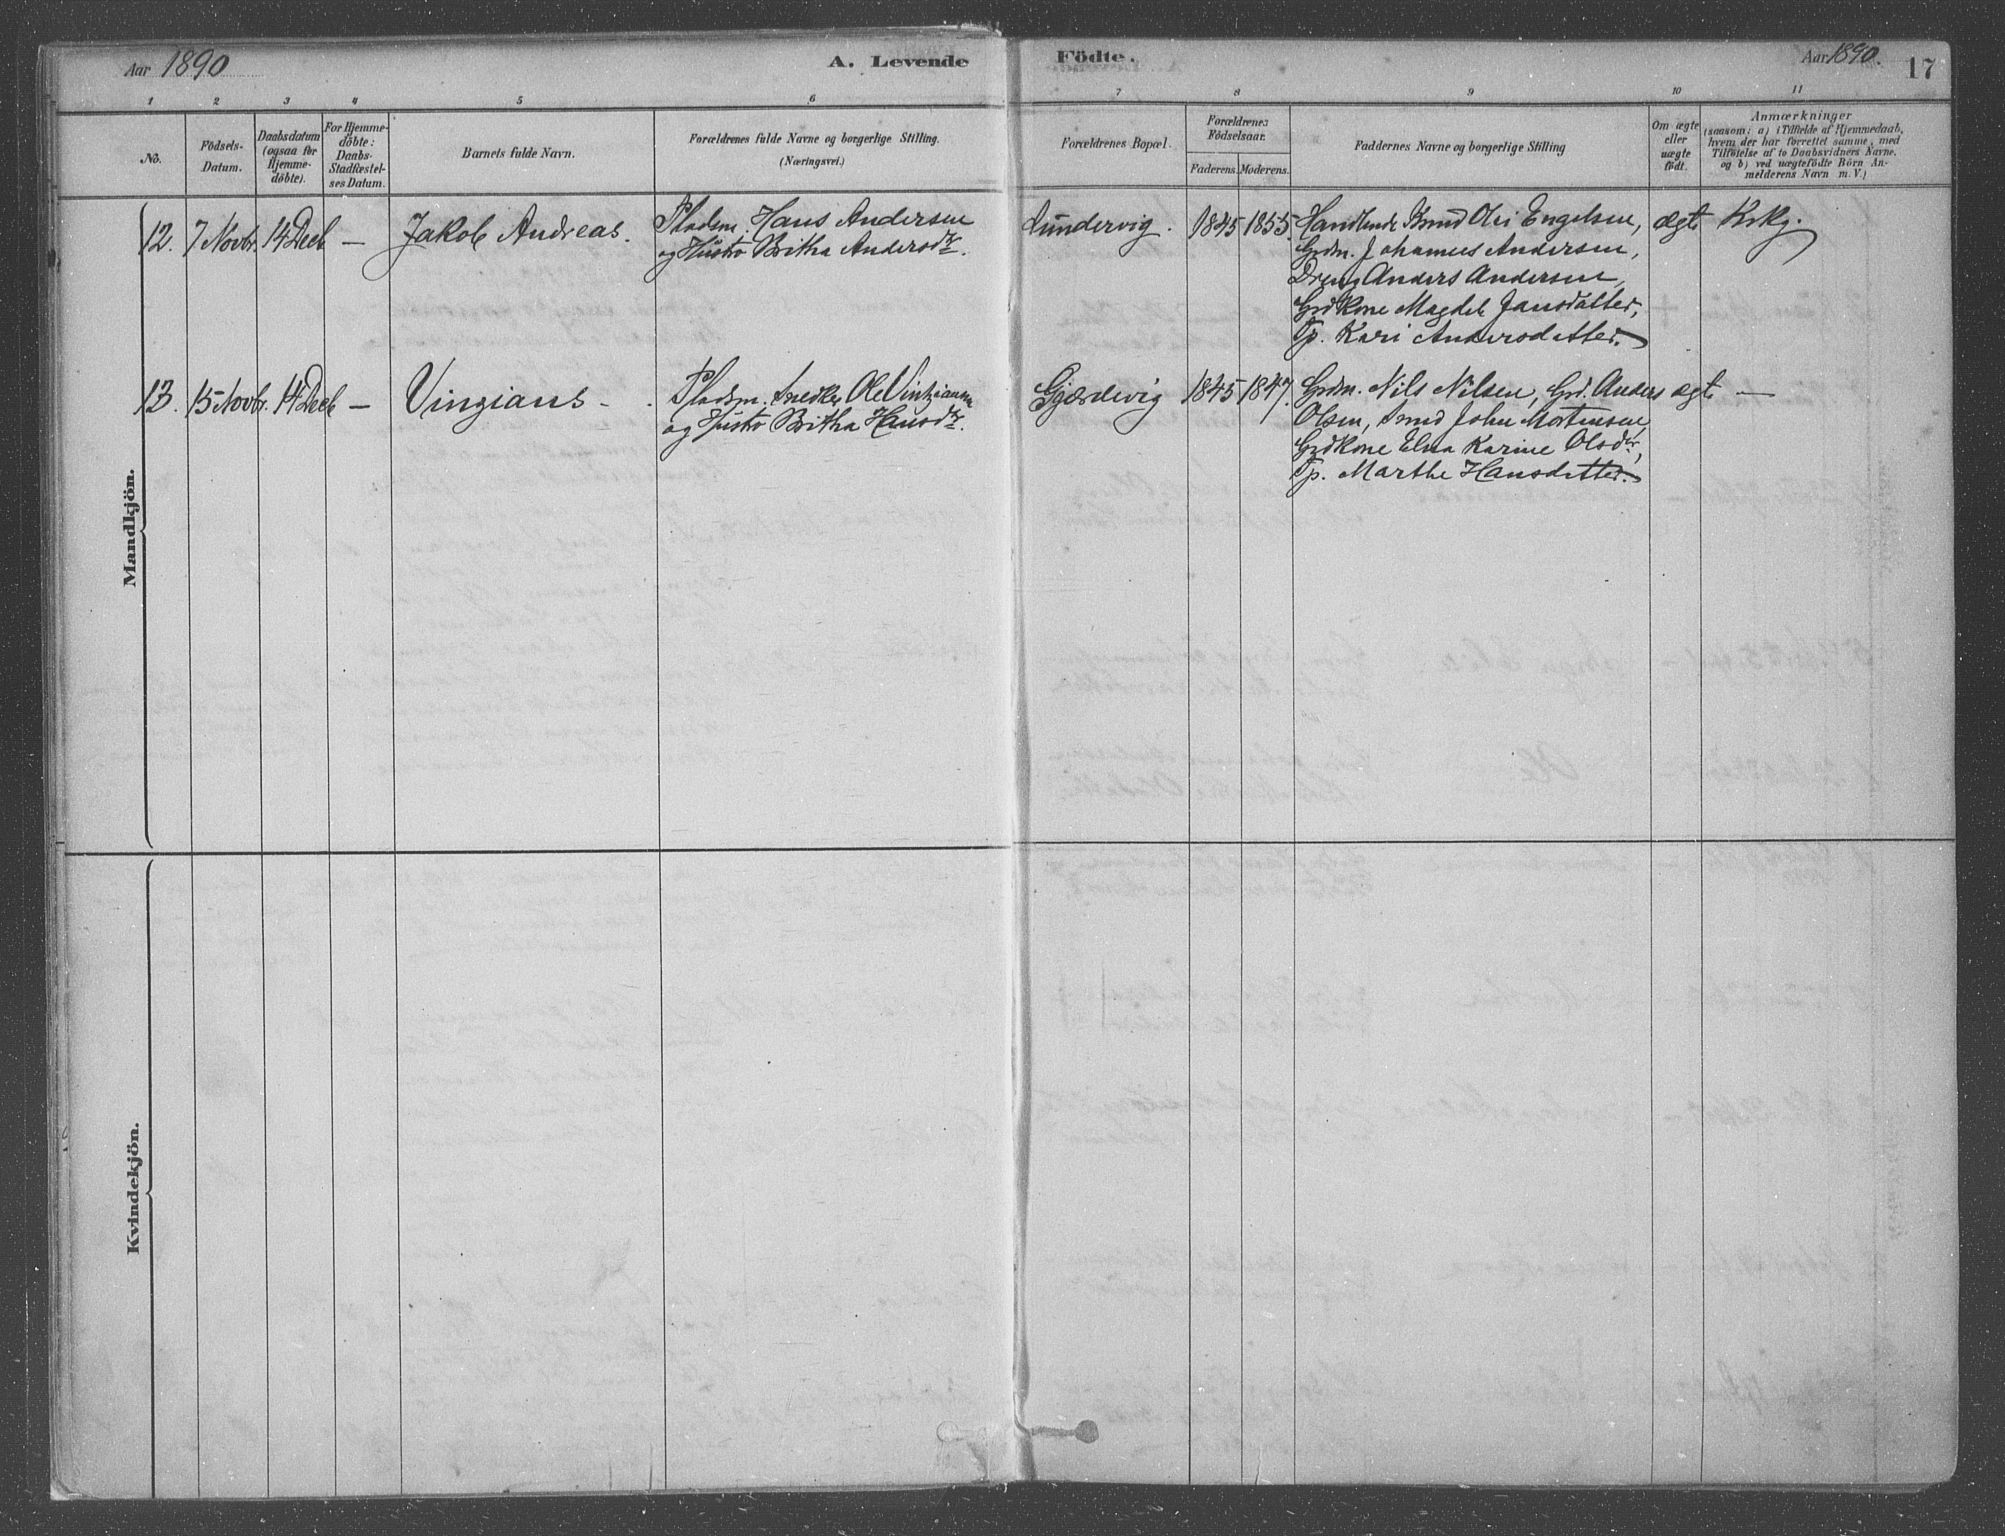 Aar 1890 A. Levende Födte. Aar 1890. 17
1 2 3 4 5 6 7 8 9 10 11
No.
Födsels-
Datum.
Daabsdatum
(ogsaa for
Hjemme-
döbte).
For Hjemme-
döbte:
Daabs-
Stadfæstel-
ses Datum.
Barnets fulde Navn.
Forældrenes fulde Navne og borgerlige Stilling.
(Næringsvei.)
Forældrenes Bopæl.
Forældrenes
Födselsaar.
Faderens. Moderens.
Faddernes Navne og borgerlige Stilling
Om ægte
eller
uægte
födt.
Anmærkninger
(saasom: a) i Tilfælde af Hjemmedaab,
hvem der har forrettet samme, med
Tilföielse af to Daabsvidners Navne.
og b) ved uægtefödte Börn An-
melderens Navn m. V.)
Mandkjön.
12. 7 Novbr. 14 Decb — Jakob Andreas.
Pladsm. Hans Andersen
og Hustru Britha Andersdtr.
Lundervig. 1845 1855.
Handlende Knud Olai Engelsen,
Grdm. Johannes Andersen,
Dreng Anders Andersen,
Grdkone Magdel Jansdatter,
Tp. Kari Andersdatter.
ægte Krkj.
13. 15 Novbr. 14 Decb — Vinzians -
Pladsm. Snedker Ole Vintziansen
og Hustru Britha Hansdtr.
Gjærdevig 1845 1847.
Grdm. Nils Nilsen, Grd. Anders
Olsen, Smed John Mortensen,
Grdkone Elna Karine Olsdtr,
Tp. Marthe Hansdatter.
ægte —
Kvindekjön.